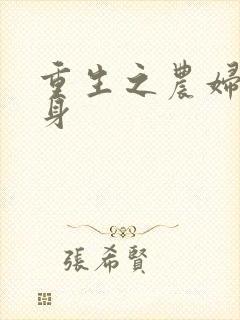 重生之農婦
身
張希賢